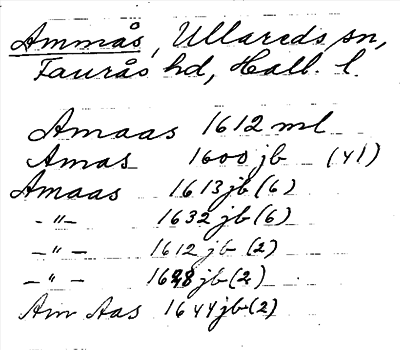 Ammås, Ullareds sn,
Faurås hd, Hall. l.
Amaas 1612 ml
Amas 1600 jb (41)
Amaas 1613 jb (6)
-"- 1632 jb (6)
-"- 1612 jb (2)
-"- jb (2)
Am Aas 1644 jb (2)